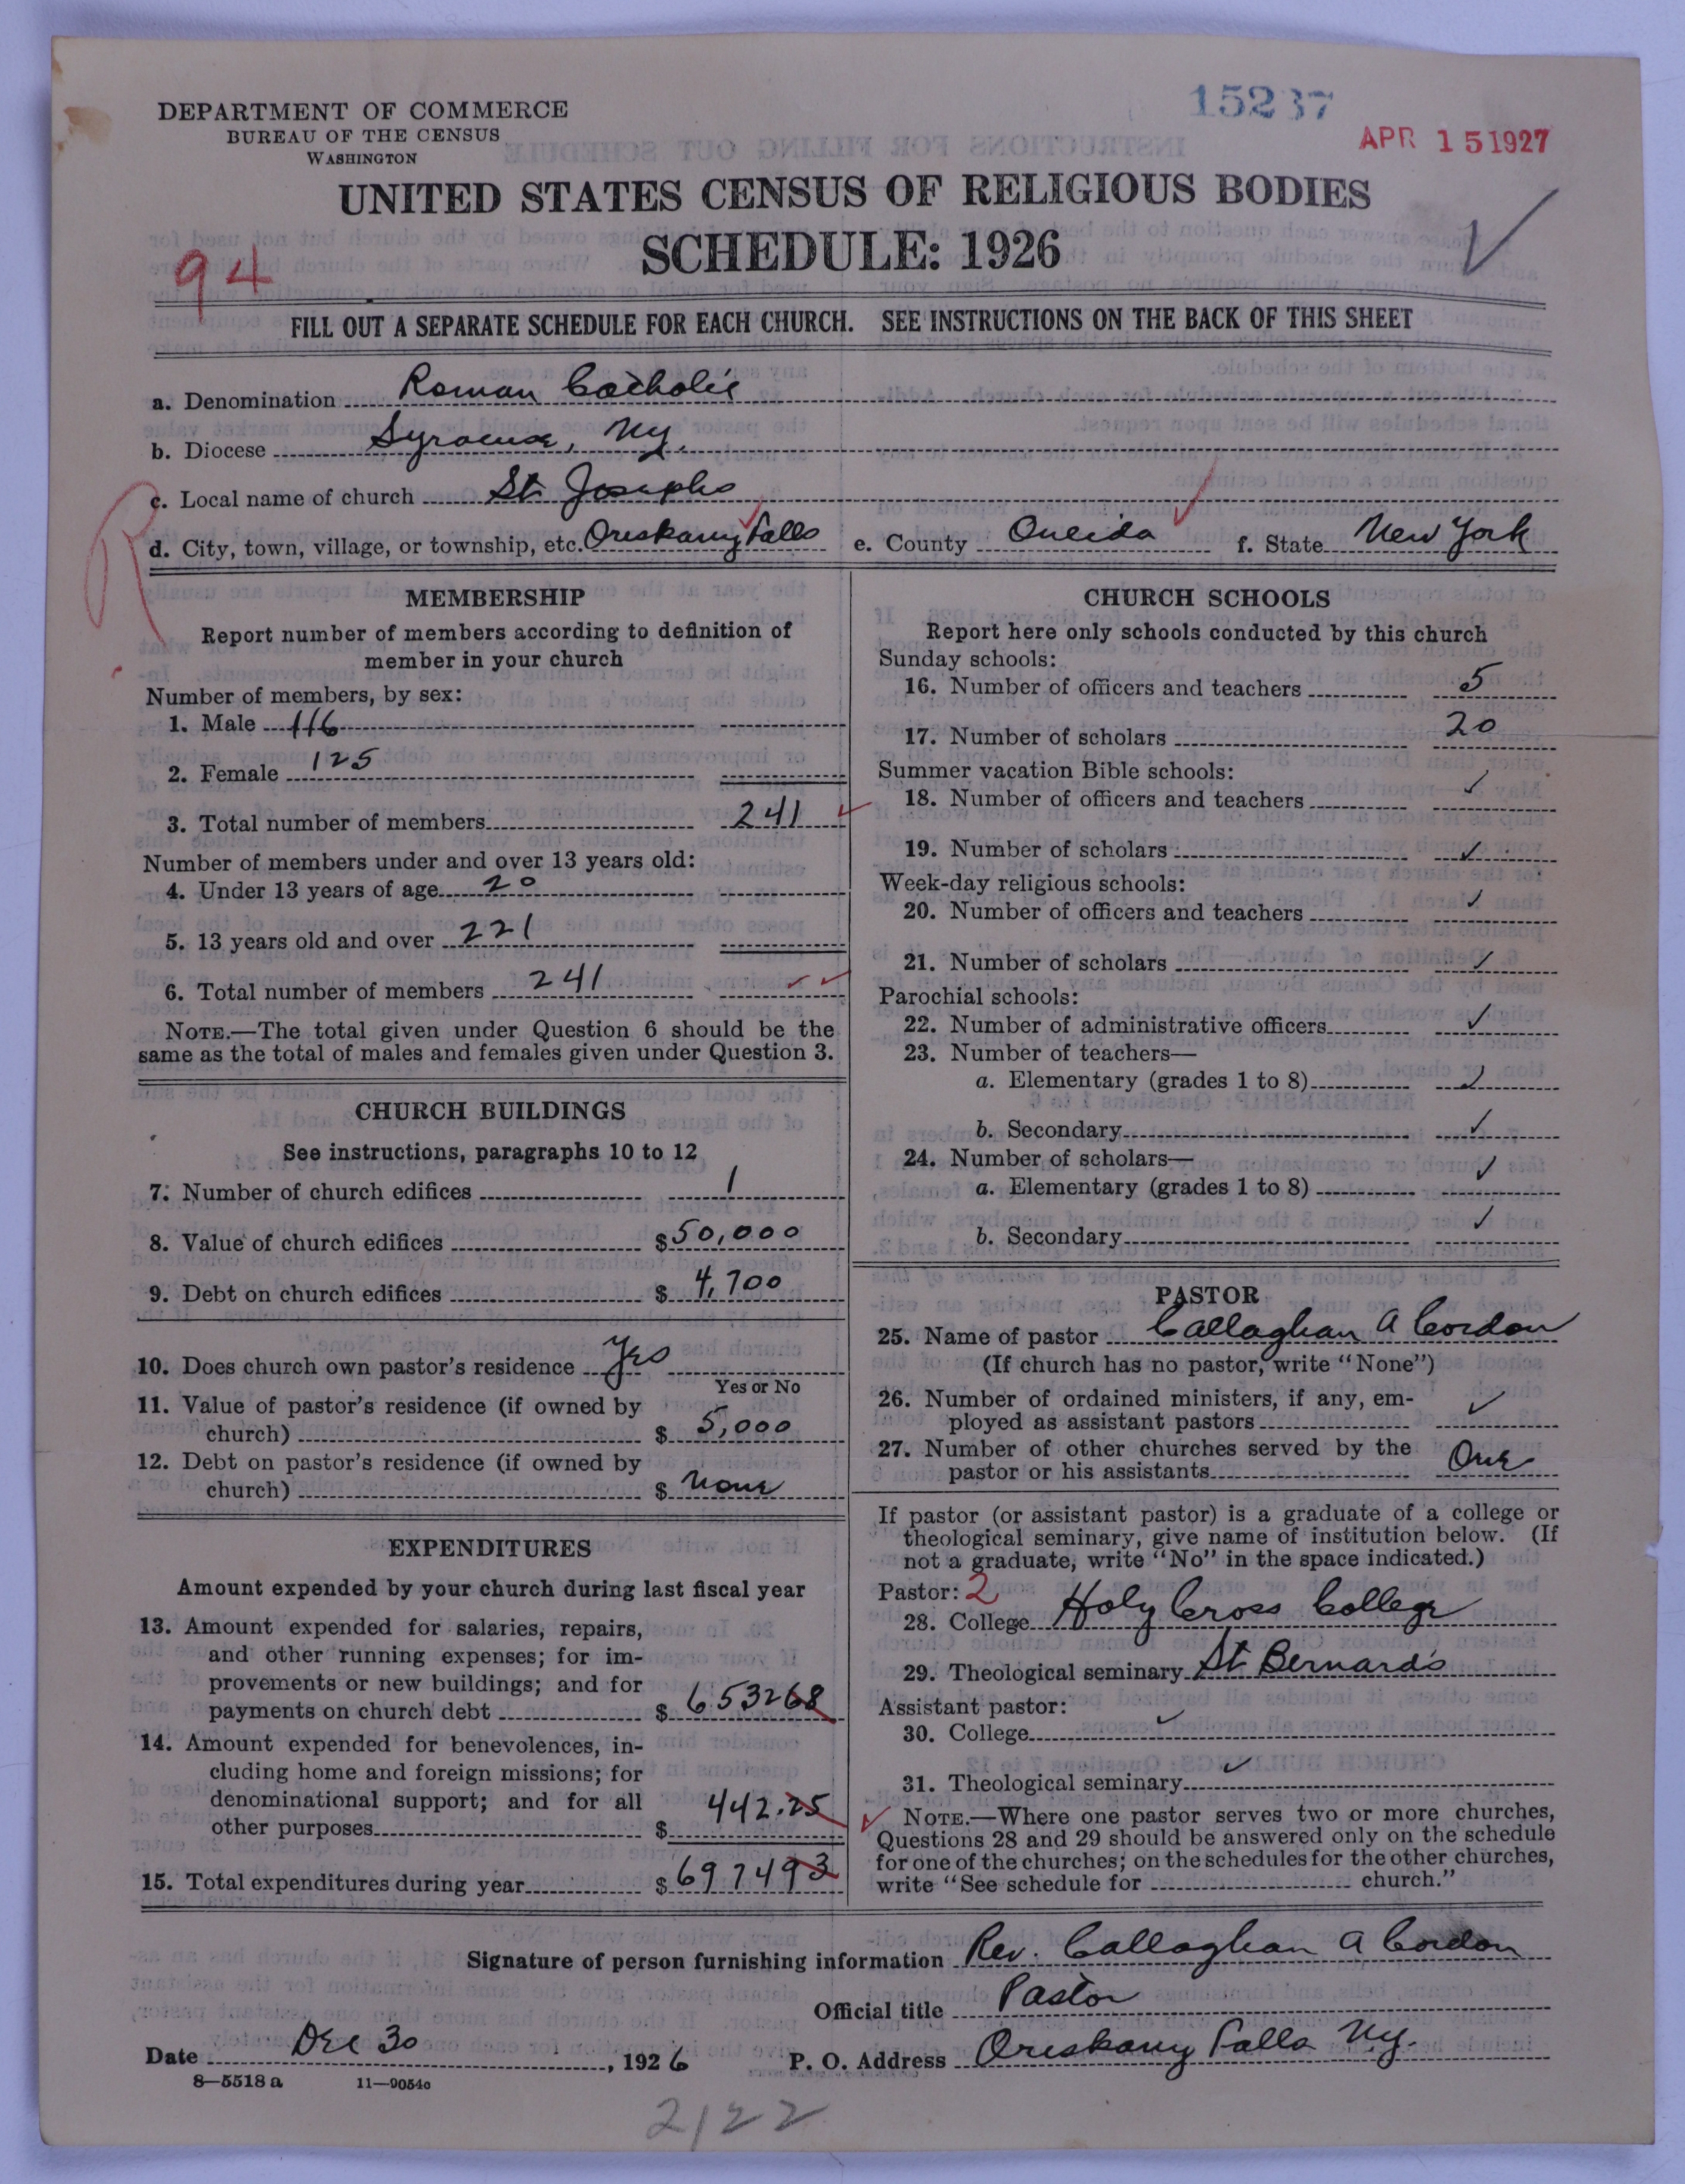 DEPARTMENT OF COMMERCE
BUREAU OF THE CENSUS
WASHINGTON
15237
APR 15 1927
UNITED STATES CENSUS OF RELIGIOUS BODIES
SCHEDULE: 1926
94
FILL OUT A SEPARATE SCHEDULE FOR EACH CHURCH. SEE INSTRUCTIONS ON THE BACK OF THIS SHEET
a. Denomination Roman Catholic
b. Diocese Syracuse, Ny.
c. Local name of church St Josephs
d. City, town, village, or township, etc. Oriskany Falls e. County Oneida f. State New York
R
MEMBERSHIP
Report number of members according to definition of
member in your church
Number of members, by sex:
1. Male 116
2. Female 125
3. Total number of members 241
Number of members under and over 13 years old:
4. Under 13 years of age 20
5. 13 years old and over 221
6. Total number of members 241
NOTE.—The total given under Question 6 should be the
same as the total of males and females given under Question 3.
CHURCH BUILDINGS
See instructions, paragraphs 10 to 12
7. Number of church edifices 1
8. Value of church edifices $ 50,000
9. Debt on church edifices $ 4,700
10. Does church own pastor's residence Yes
Yes or No
11. Value of pastor's residence (if owned by
church) $ 5,000
12. Debt on pastor's residence (if owned by
church) $ None
EXPENDITURES
Amount expended by your church during last fiscal year
13. Amount expended for salaries, repairs,
and other running expenses; for im-
provements or new buildings; and for
payments on church debt $ 653268
14. Amount expended for benevolences, in-
cluding home and foreign missions; for
denominational support; and for all
other purposes $ 442.25
15. Total expenditures during year $ 697493
CHURCH SCHOOLS
Report here only schools conducted by this church
Sunday schools:
16. Number of officers and teachers 5
17. Number of scholars 20
Summer vacation Bible schools:
18. Number of officers and teachers ✓
19. Number of scholars ✓
Week-day religious schools:
20. Number of officers and teachers ✓
21. Number of scholars ✓
Parochial schools:
22. Number of administrative officers ✓
23. Number of teachers—
a. Elementary (grades 1 to 8) ✓
b. Secondary ✓
24. Number of scholars—
a. Elementary (grades 1 to 8) ✓
b. Secondary ✓
PASTOR
25. Name of pastor Callaghan A Cordon
(If church has no pastor, write "None")
26. Number of ordained ministers, if any, em-
ployed as assistant pastors ✓
27. Number of other churches served by the
pastor or his assistants One
If pastor (or assistant pastor) is a graduate of a college or
theological seminary, give name of institution below. (If
not a graduate, write "No" in the space indicated.)
Pastor: 2
28. College Holy Cross College
29. Theological seminary St Bernard's
Assistant pastor:
30. College ✓
31. Theological seminary ✓
NOTE.—Where one pastor serves two or more churches,
Questions 28 and 29 should be answered only on the schedule
for one of the churches; on the schedules for the other churches,
write "See schedule for church."
Signature of person furnishing information Rev. Callaghan A Cordon
Official title Pastor
Date Dec 30, 1926 P. O. Address Oriskany Falls Ny.
8—5518 a 11—9054c
2122